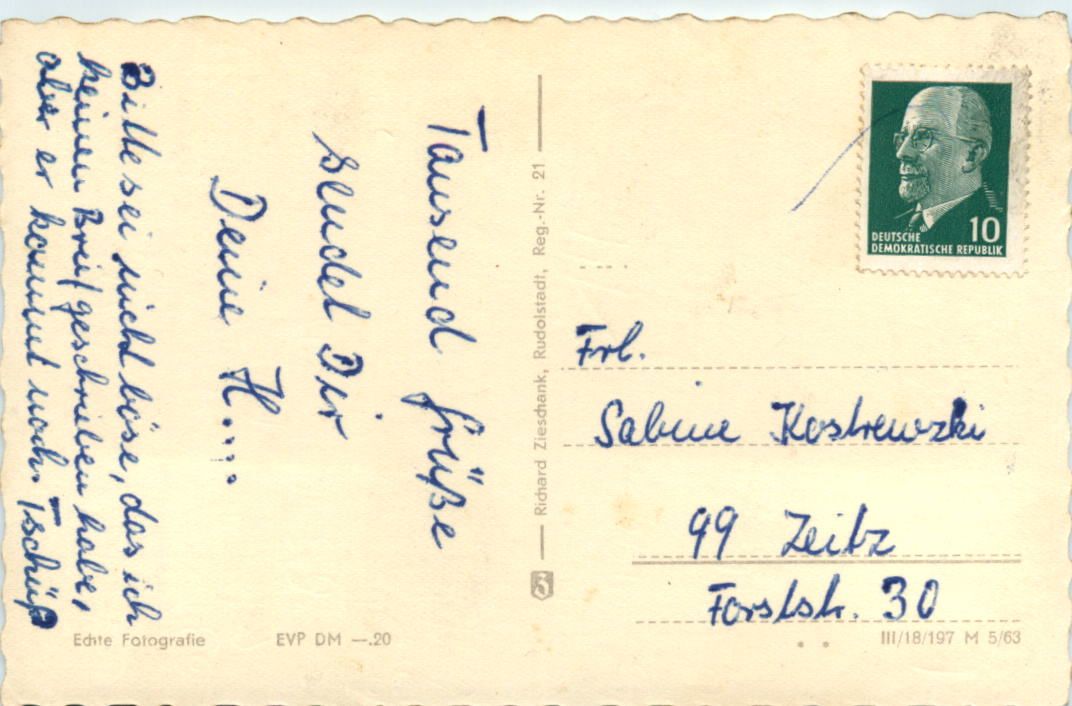 Tausend Grüße
sendet Dir
Deine H....
Bitte sei nicht böse, das ich
keinen Brief geschrieben habe,
aber er kommt noch. Tschüß
Echte Fotografie
EVP DM —.20
Richard Zieschank, Rudolstadt, Reg.-Nr. 21
10
DEUTSCHE
DEMOKRATISCHE REPUBLIK
Frl.
Sabine Kostrewzki
99 Zeitz
Forststr. 30
III/18/197 M 5/63